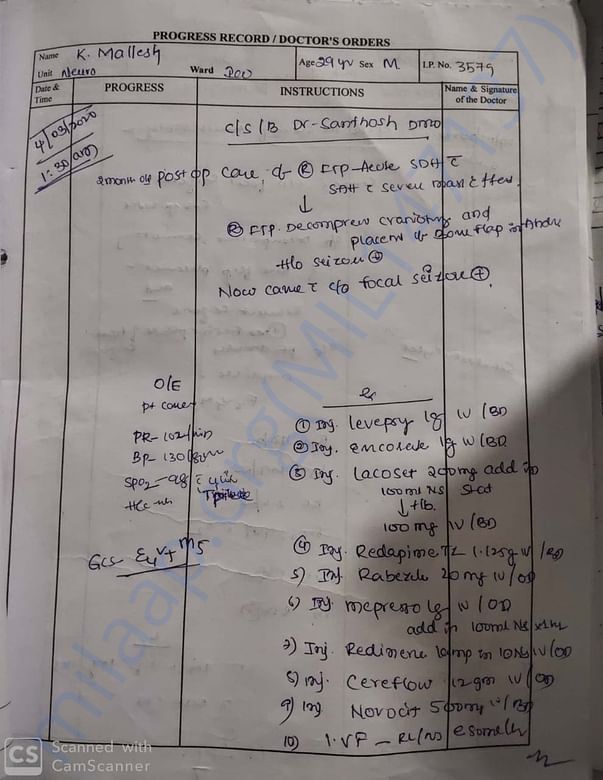 PROGRESS RECORD / DOCTOR'S ORDERS
Name K. Mallesh Age 29 yr Sex M I.P. No. 3579
Unit Neuro Ward
Date & Time PROGRESS INSTRUCTIONS Name & Signature of the Doctor
4/03/2020 C/S/B Dr-Santhosh
1:30 am
2 month old post op case of (R) FTP-Acute SDH c̄
SAH c̄ mass effect
↓
(R) FTP. Decompress and
placement of Bone flap in
H/o seizure (+)
Now came c̄ c/o focal seizure (+)
O/E
PR- 102/min
BP- 130/
SPO2-
GCS- E4 VT M5
① Inj. levepsy 1g IV/BD
② Inj. encorate 1g IV/BD
③ Inj. Lacoset 200mg add in
100ml NS Stat
↓ f/b
100 mg IV/BD
④ Inj. Redapime TZ 1.125g IV/BD
5) Inj. 20mg IV/OD
6) Inj. 1g IV/OD
add in 100ml NS
7) Inj. 1amp in 10 NS IV/OD
8) Inj. Cereflow 12gm IV/OD
9) Inj Novocit 500mg IV/BD
10) I.VF - RL/NS
milaap.org(MIL147137)
CS Scanned with
CamScanner